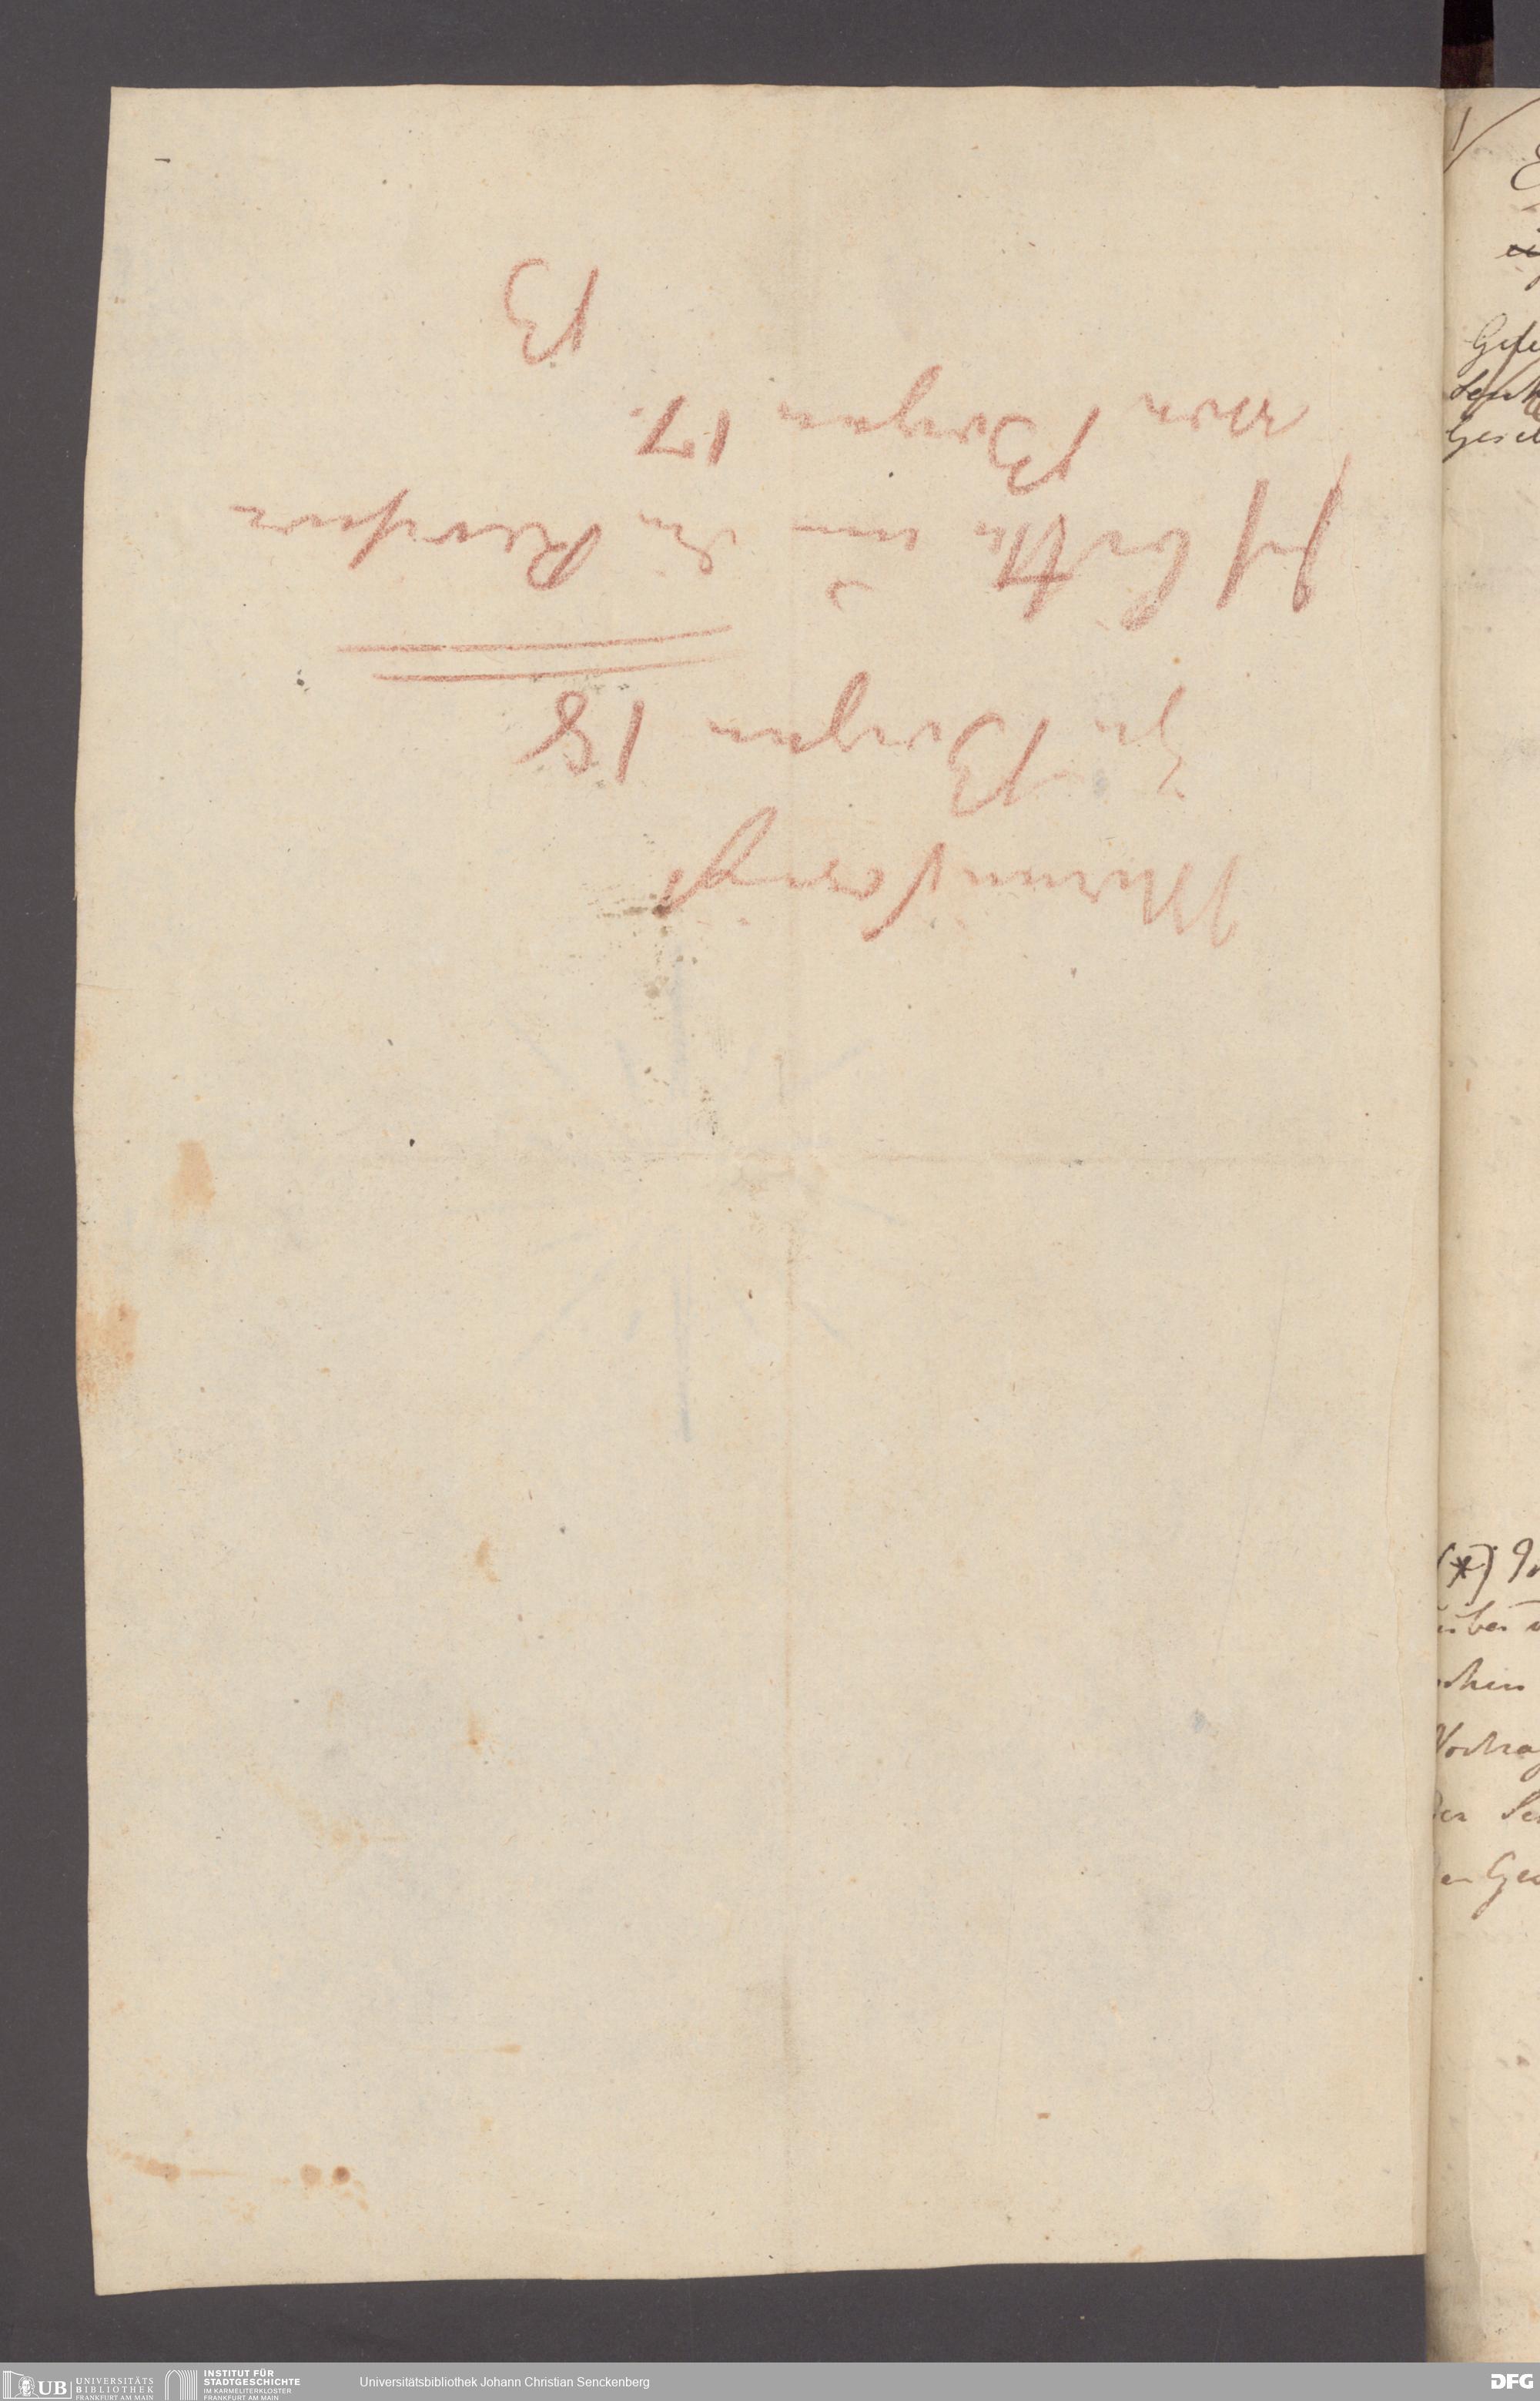 Manuskript
zu Bogen 18
Ich bitte um die Revision
von Bogen 17.
B
Gese
Gesel
(*) In
über
Vortrag
der Se
UB
UNIVERSITÄTS
BIBLIOTHEK
FRANKFURT AM MAIN
INSTITUT FÜR
STADTGESCHICHTE
IM KARMELITERKLOSTER
FRANKFURT AM MAIN
Universitätsbibliothek Johann Christian Senckenberg
DFG